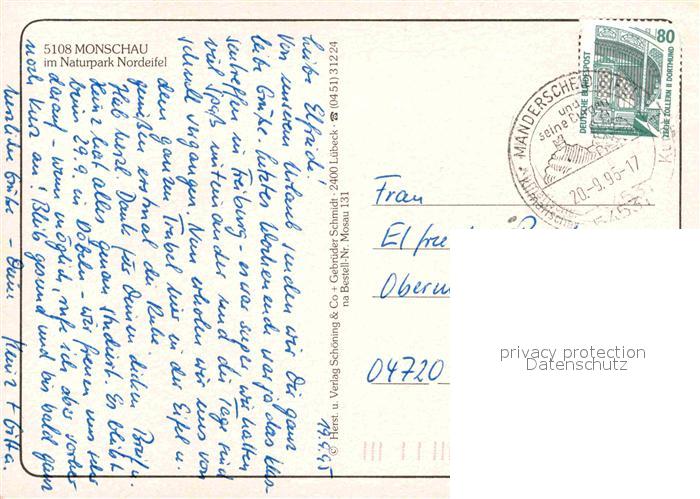 5108 MONSCHAU
im Naturpark Nordeifel
19.9.95
Liebe Elfriede!
Von unserem Urlaub senden wir Dir ganz
liebe Grüße. Letztes Wochenende war ja das
in Freiburg - es war super, wir hatten
viel Spaß miteinander und die Tage sind
schnell vergangen. Nun erholen wir uns von
dem ganzen Trubel hier in der Eifel u.
genießen erstmal die Ruhe.
Hab herzl. Dank für Deinen dicken Brief u.
Heinz hat alles genau studiert. Es bleibt
beim 29.9. in Döbeln - wir freuen uns sehr
darauf - wenn möglich, rufe ich aber vorher
noch kurz an! Bleib gesund und bis bald ganz
herzliche Grüße - Deine
Heinz + Gitta.
© Herst. u. Verlag Schöning & Co + Gebrüder Schmidt · 2400 Lübeck · ☎ (04 51) 3 12 24
na Bestell-Nr. Mosau 131
80
DEUTSCHE BUNDESPOST
ZECHE ZOLLERN II DORTMUND
MANDERSCHEID
und
seine Burgen
20.-9.95-17
54531
Frau
Elfriede
04720
privacy protection
Datenschutz